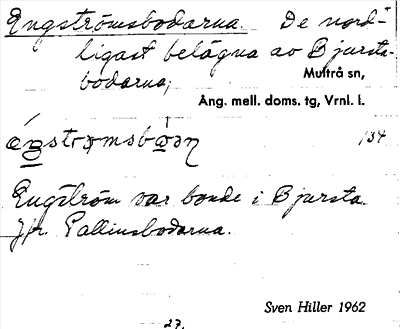 Engströmsbodarna. De nord-
ligast belägna av Bjursta-
bodarna;
Multrå sn,
Ång. mell. doms. tg, Vrnl. l.
134
Engström var bonde i Bjursta.
Jfr. Pallinsbodarna.
Sven Hiller 1962
27.